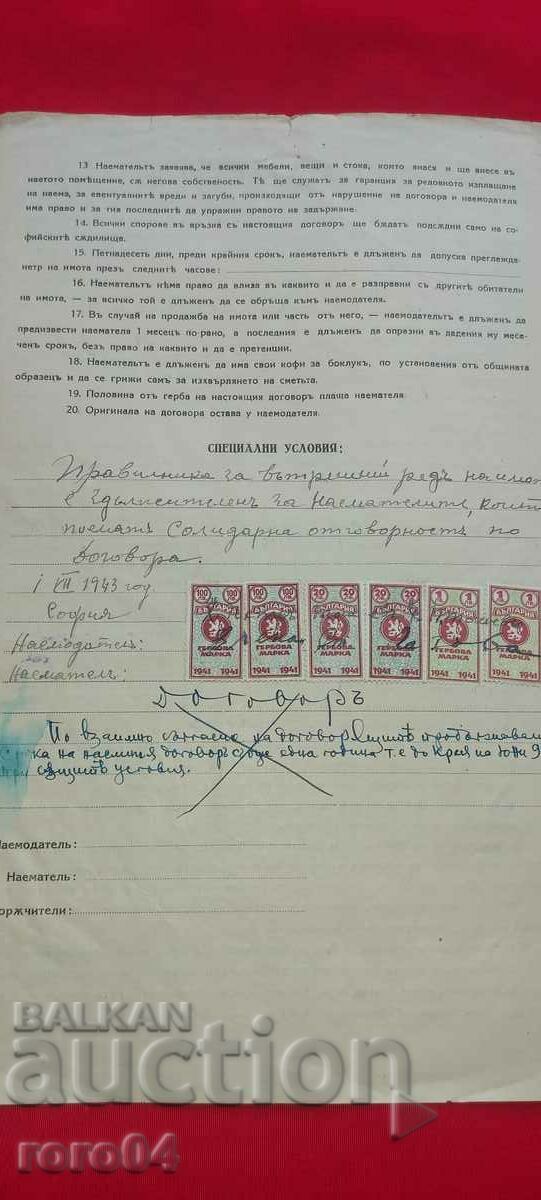 13 Наемательтъ заявява, че всички мебели, вещи и стока, които внася и ще внесе въ
наетото помѣщение, сѫ негова собственость. Тѣ ще служатъ за гаранция за редовното изплащане
на наема, за евентуалнитѣ вреди и загуби, произходящи отъ нарушение на договора и наемодателя
има право и за тия последнитѣ да упражни правото на задържане.
14. Всички спорове въ връзка съ настоящия договоръ ще бѫдатъ подсѫдни само на со-
фийскитѣ сѫдилища.
15. Петнадесеть дни, преди крайния срокъ, наемательтъ е длъженъ да допуска преглежда-
нето на имота презъ следнитѣ часове:
16. Наемательтъ нѣма право да влиза въ каквито и да е разправии съ другитѣ обитатели
на имота, — за всичко той е длъженъ да се обръща къмъ наемодателя.
17. Въ случай на продажба на имота или часть отъ него, — наемодательтъ е длъженъ да
предизвести наемателя 1 месецъ по-рано, а последния е длъженъ да опразни въ дадения му месе-
ченъ срокъ, безъ право на каквито и да е претенции.
18. Наемательтъ е длъженъ да има свои кофи за боклукъ, по установения отъ общината
образецъ и да се грижи самъ за изхвърлянето на сметьта.
19. Половина отъ герба на настоящия договоръ плаща наемателя.
20. Оригинала на договора остава у наемодателя.
СПЕЦИАЛНИ УСЛОВИЯ:
Правилника за вътрешний редъ на имота
е задължителенъ за Наемателите, които
поематъ Солидарна отговорность по
договора.
1 VII 1943 год.
София
Наемодатель:
Наематель:
100 100 100 100 20 20 20 20 1 1 1 1
БЪЛГАРИЯ БЪЛГАРИЯ БЪЛГАРИЯ БЪЛГАРИЯ БЪЛГАРИЯ БЪЛГАРИЯ
ГЕРБОВА МАРКА ГЕРБОВА МАРКА ГЕРБОВА МАРКА ГЕРБОВА МАРКА ГЕРБОВА МАРКА ГЕРБОВА МАРКА
1941 1941 1941 1941 1941 1941 1941 1941 1941 1941 1941 1941
Договоръ
По взаимно съгласие на договорящитѣ
на наемния договоръ още една година т.е. до края на
същитѣ условия.
Наемодатель:
Наематель:
оржчители:
BALKAN
auction
roro04